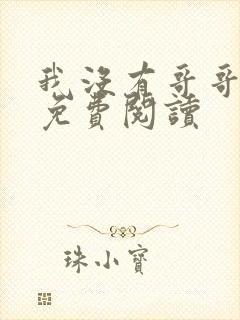 我沒有哥哥
免費閱讀
珠小寶